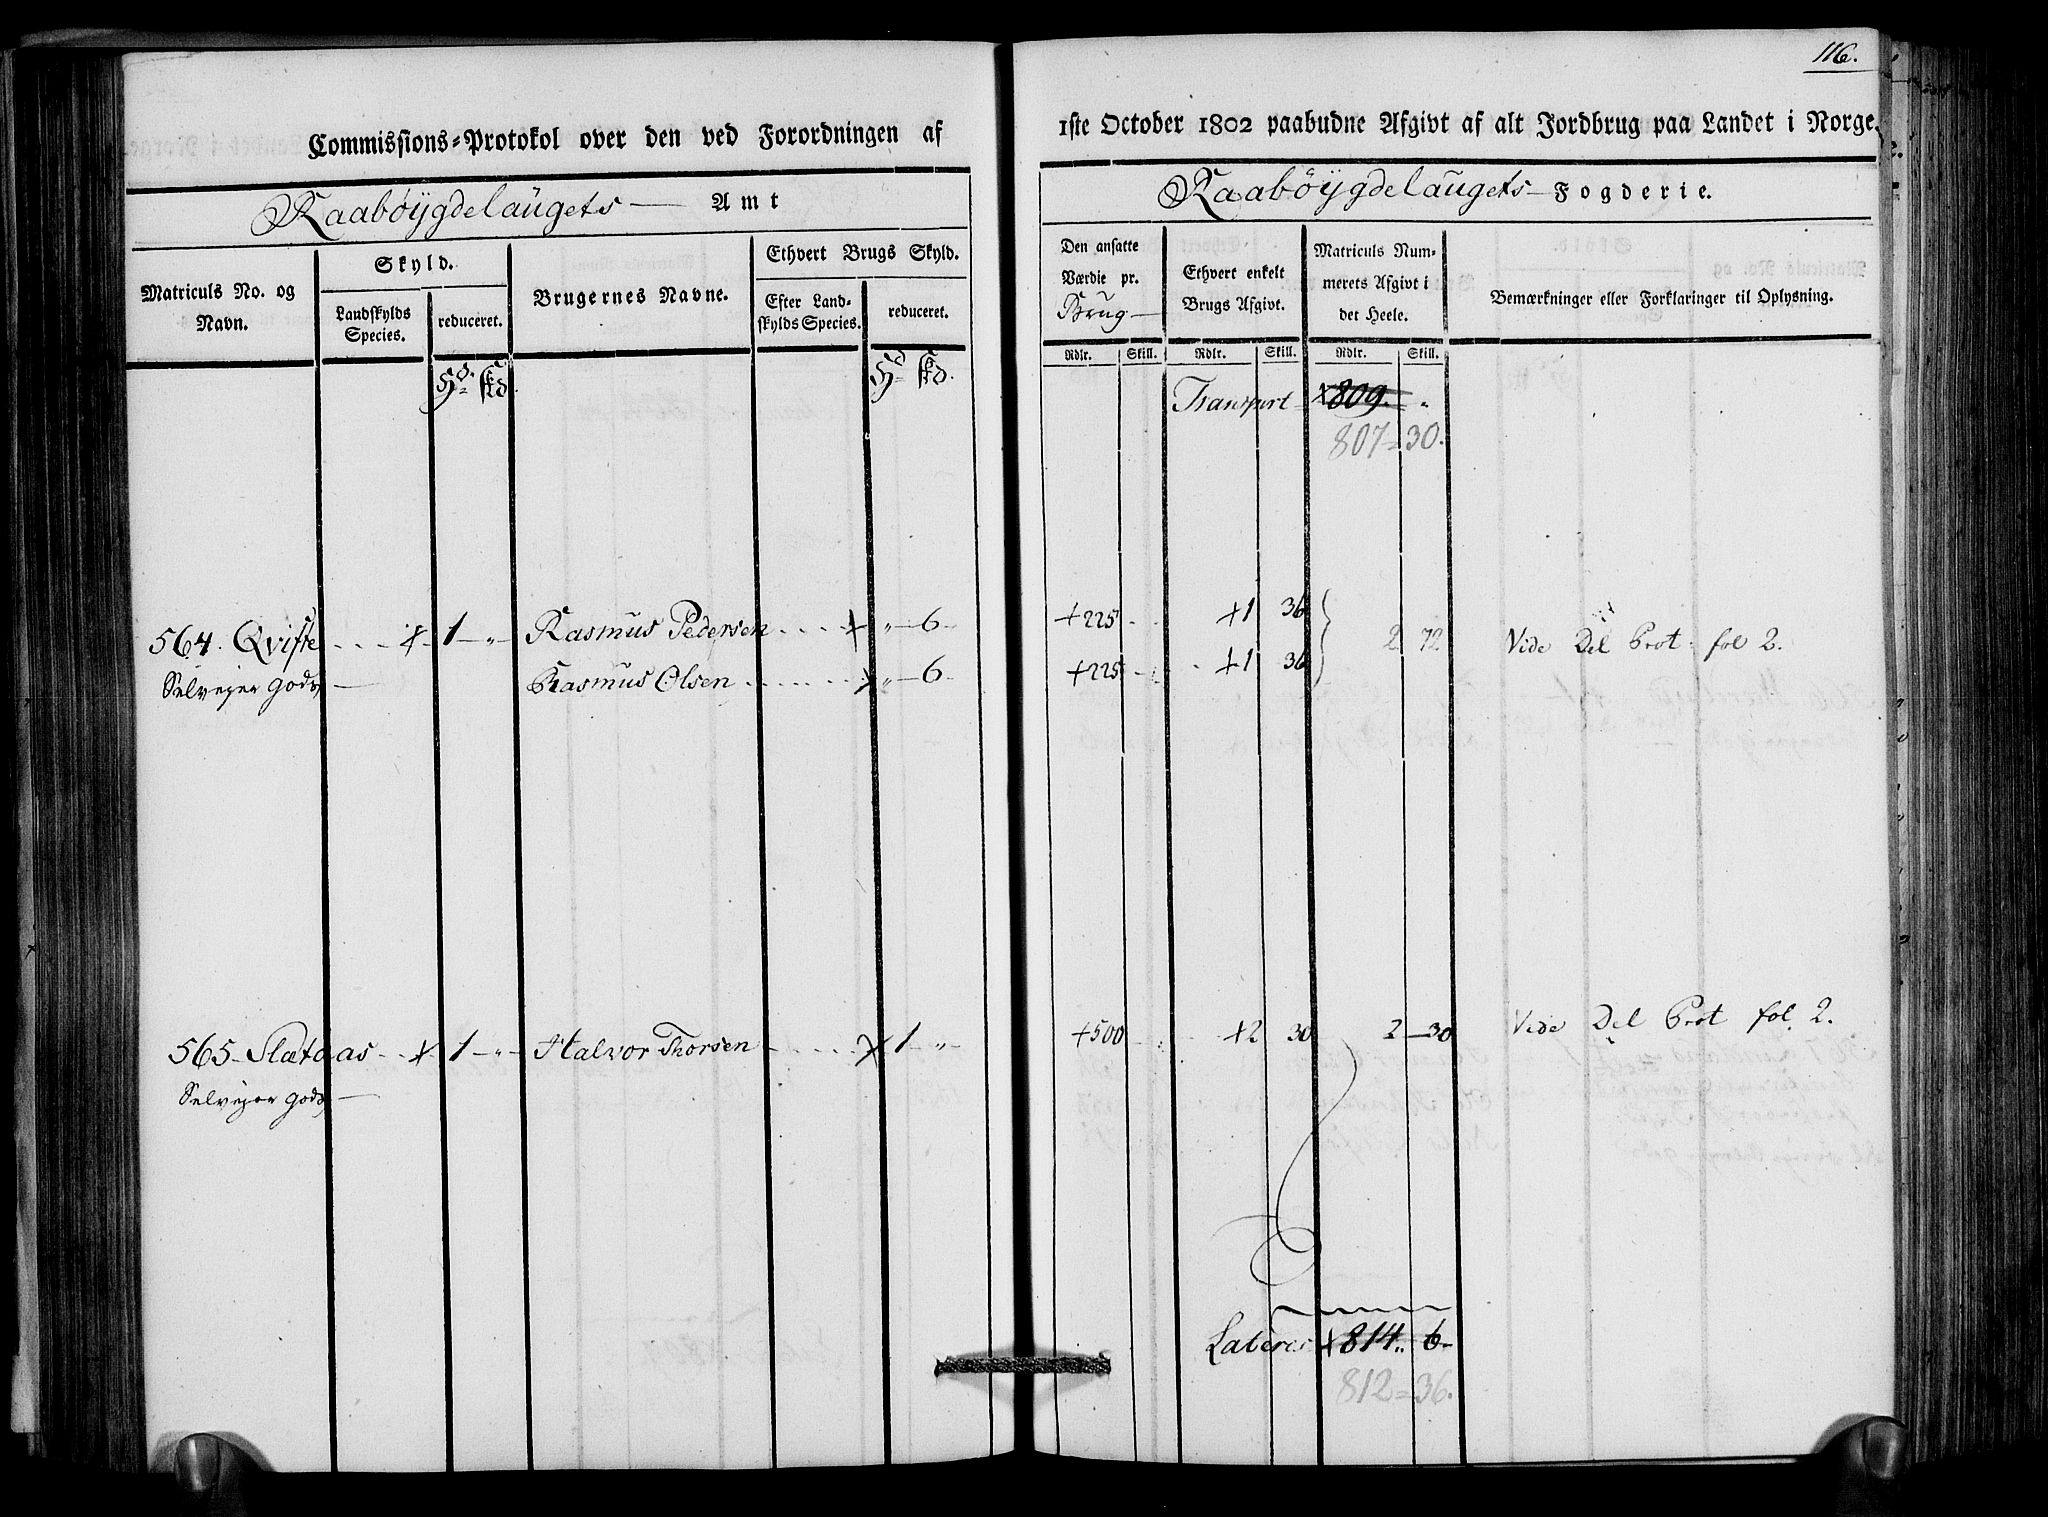 116.
Commissions-Protokol over den ved Forordningen af 1ste October 1802 paabudne Afgivt af alt Jordbrug paa Landet i Norge.
Raabøygdelaugets Amt
Raabøygdelaugets Fogderie.
Matriculs No. og Navn.
Skyld.
Landskylds Species.
reduceret.
Brugernes Navne.
Ethvert Brugs Skyld.
Efter Landskylds Species.
reduceret.
Den ansatte Værdie pr. Brug
Ethvert enkelt Brugs Afgivt.
Matriculs Nummerets Afgivt i det Heele.
Bemærkninger eller Forklaringer til Oplysning.
Rdlr. Skill. Rdlr. Skill. Rdlr. Skill.
Hd. skd. Hd skd.
Transport 809 "
807=30.
564. Qviste 1 " Rasmus Pedersen " 6 225 1 36 2 72 Vide Del Prot: fol 2.
Selvejer Gods Rasmus Olsen " 6 225 1 36
565 Slætaas 1 " Halvor Thorsen 1 " 500 2 30 2 30 Vide Del Prot fol. 2.
Selvejer Gods
Lateres 814 6
812=36.